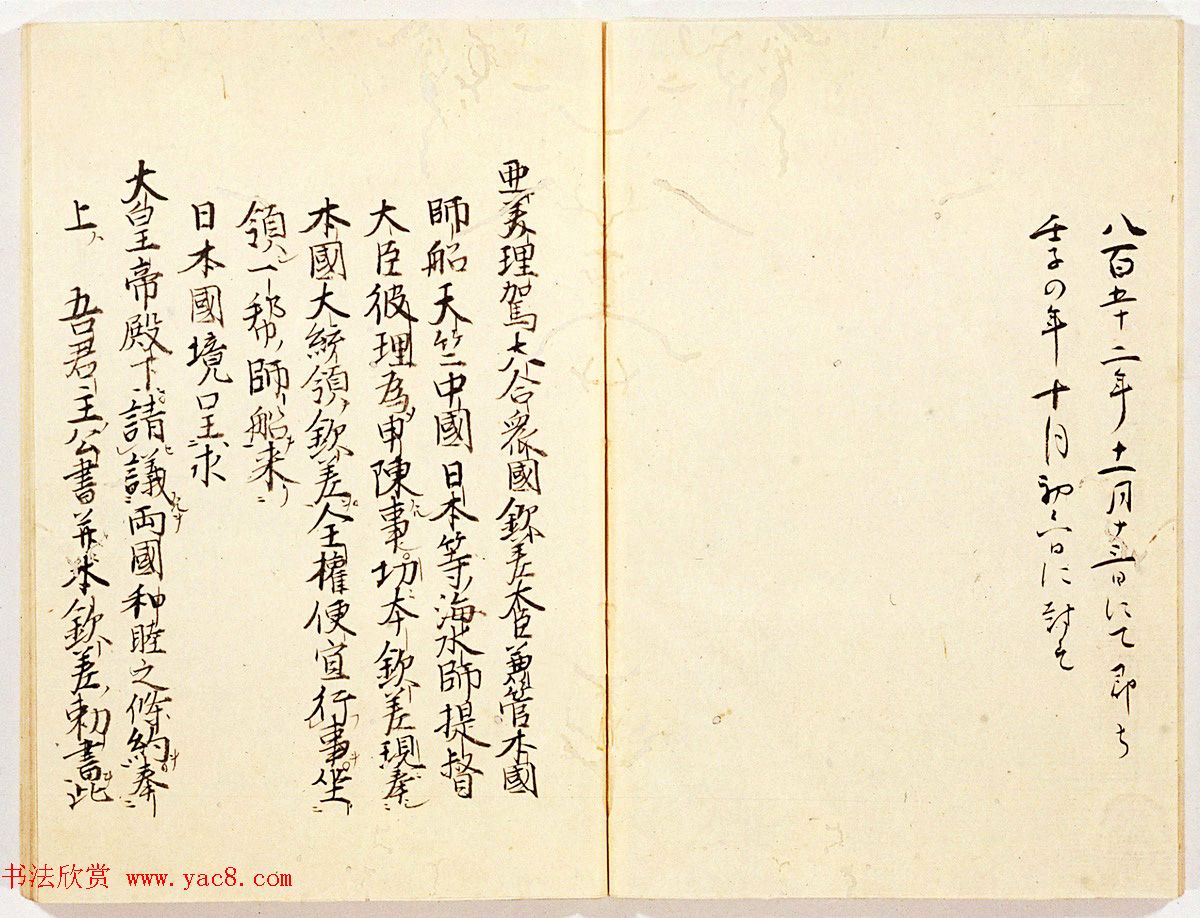 八百五十二年十一月十三日にて即ち
壬子の年十月初六日に討て
亜美理駕大合衆國欽差大臣兼管本國
師船天竺中國日本等海水師提督
大臣彼理為申陳事切本欽差現奉
本國大統領欽差全權便宜行事坐
領一幇師船来
日本國境口呈求
大皇帝殿下請議両國和睦之條約奉
上吾君主公書并本欽差勅書此
书法欣赏 www.yac8.com